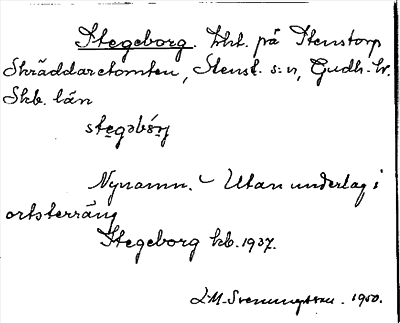 Stegeborg. lht. på Stenstorp
Skräddaretomten, Stenst. s:n, Gudh. hr.
Skb. län
stegəbórj
Nynamn. – Utan underlag i
ortsterräng
Stegeborg kb. 1937.
L-M. Svenungsson. 1950.